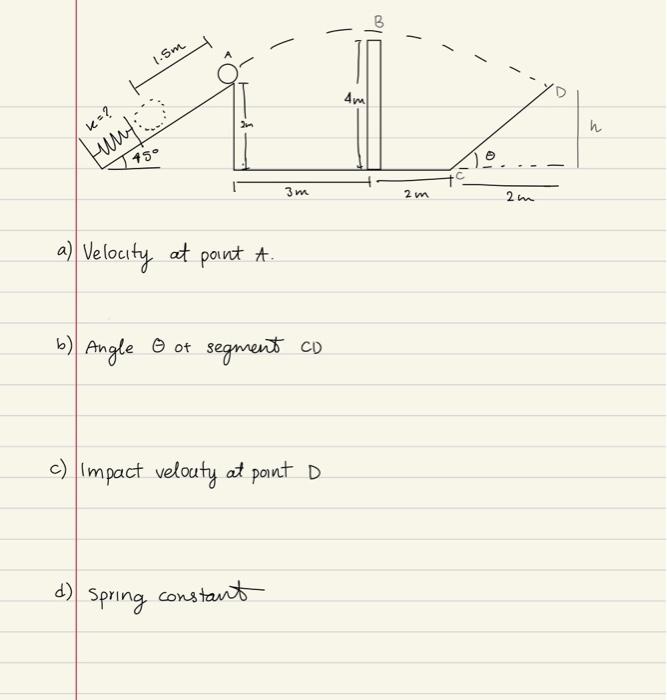 B
1.5m
A
k=?
4m
D
h
45°
θ
C
3m
2m
2m
a) Velocity at point A.
b) Angle θ of segment CD
c) Impact velouty at point D
d) Spring constant